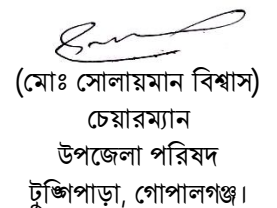 (মোঃ সোলায়মান বিশ্বাস)
চেয়ারম্যান
উপজেলা পরিষদ
টুঙ্গিপাড়া, গোপালগঞ্জ।